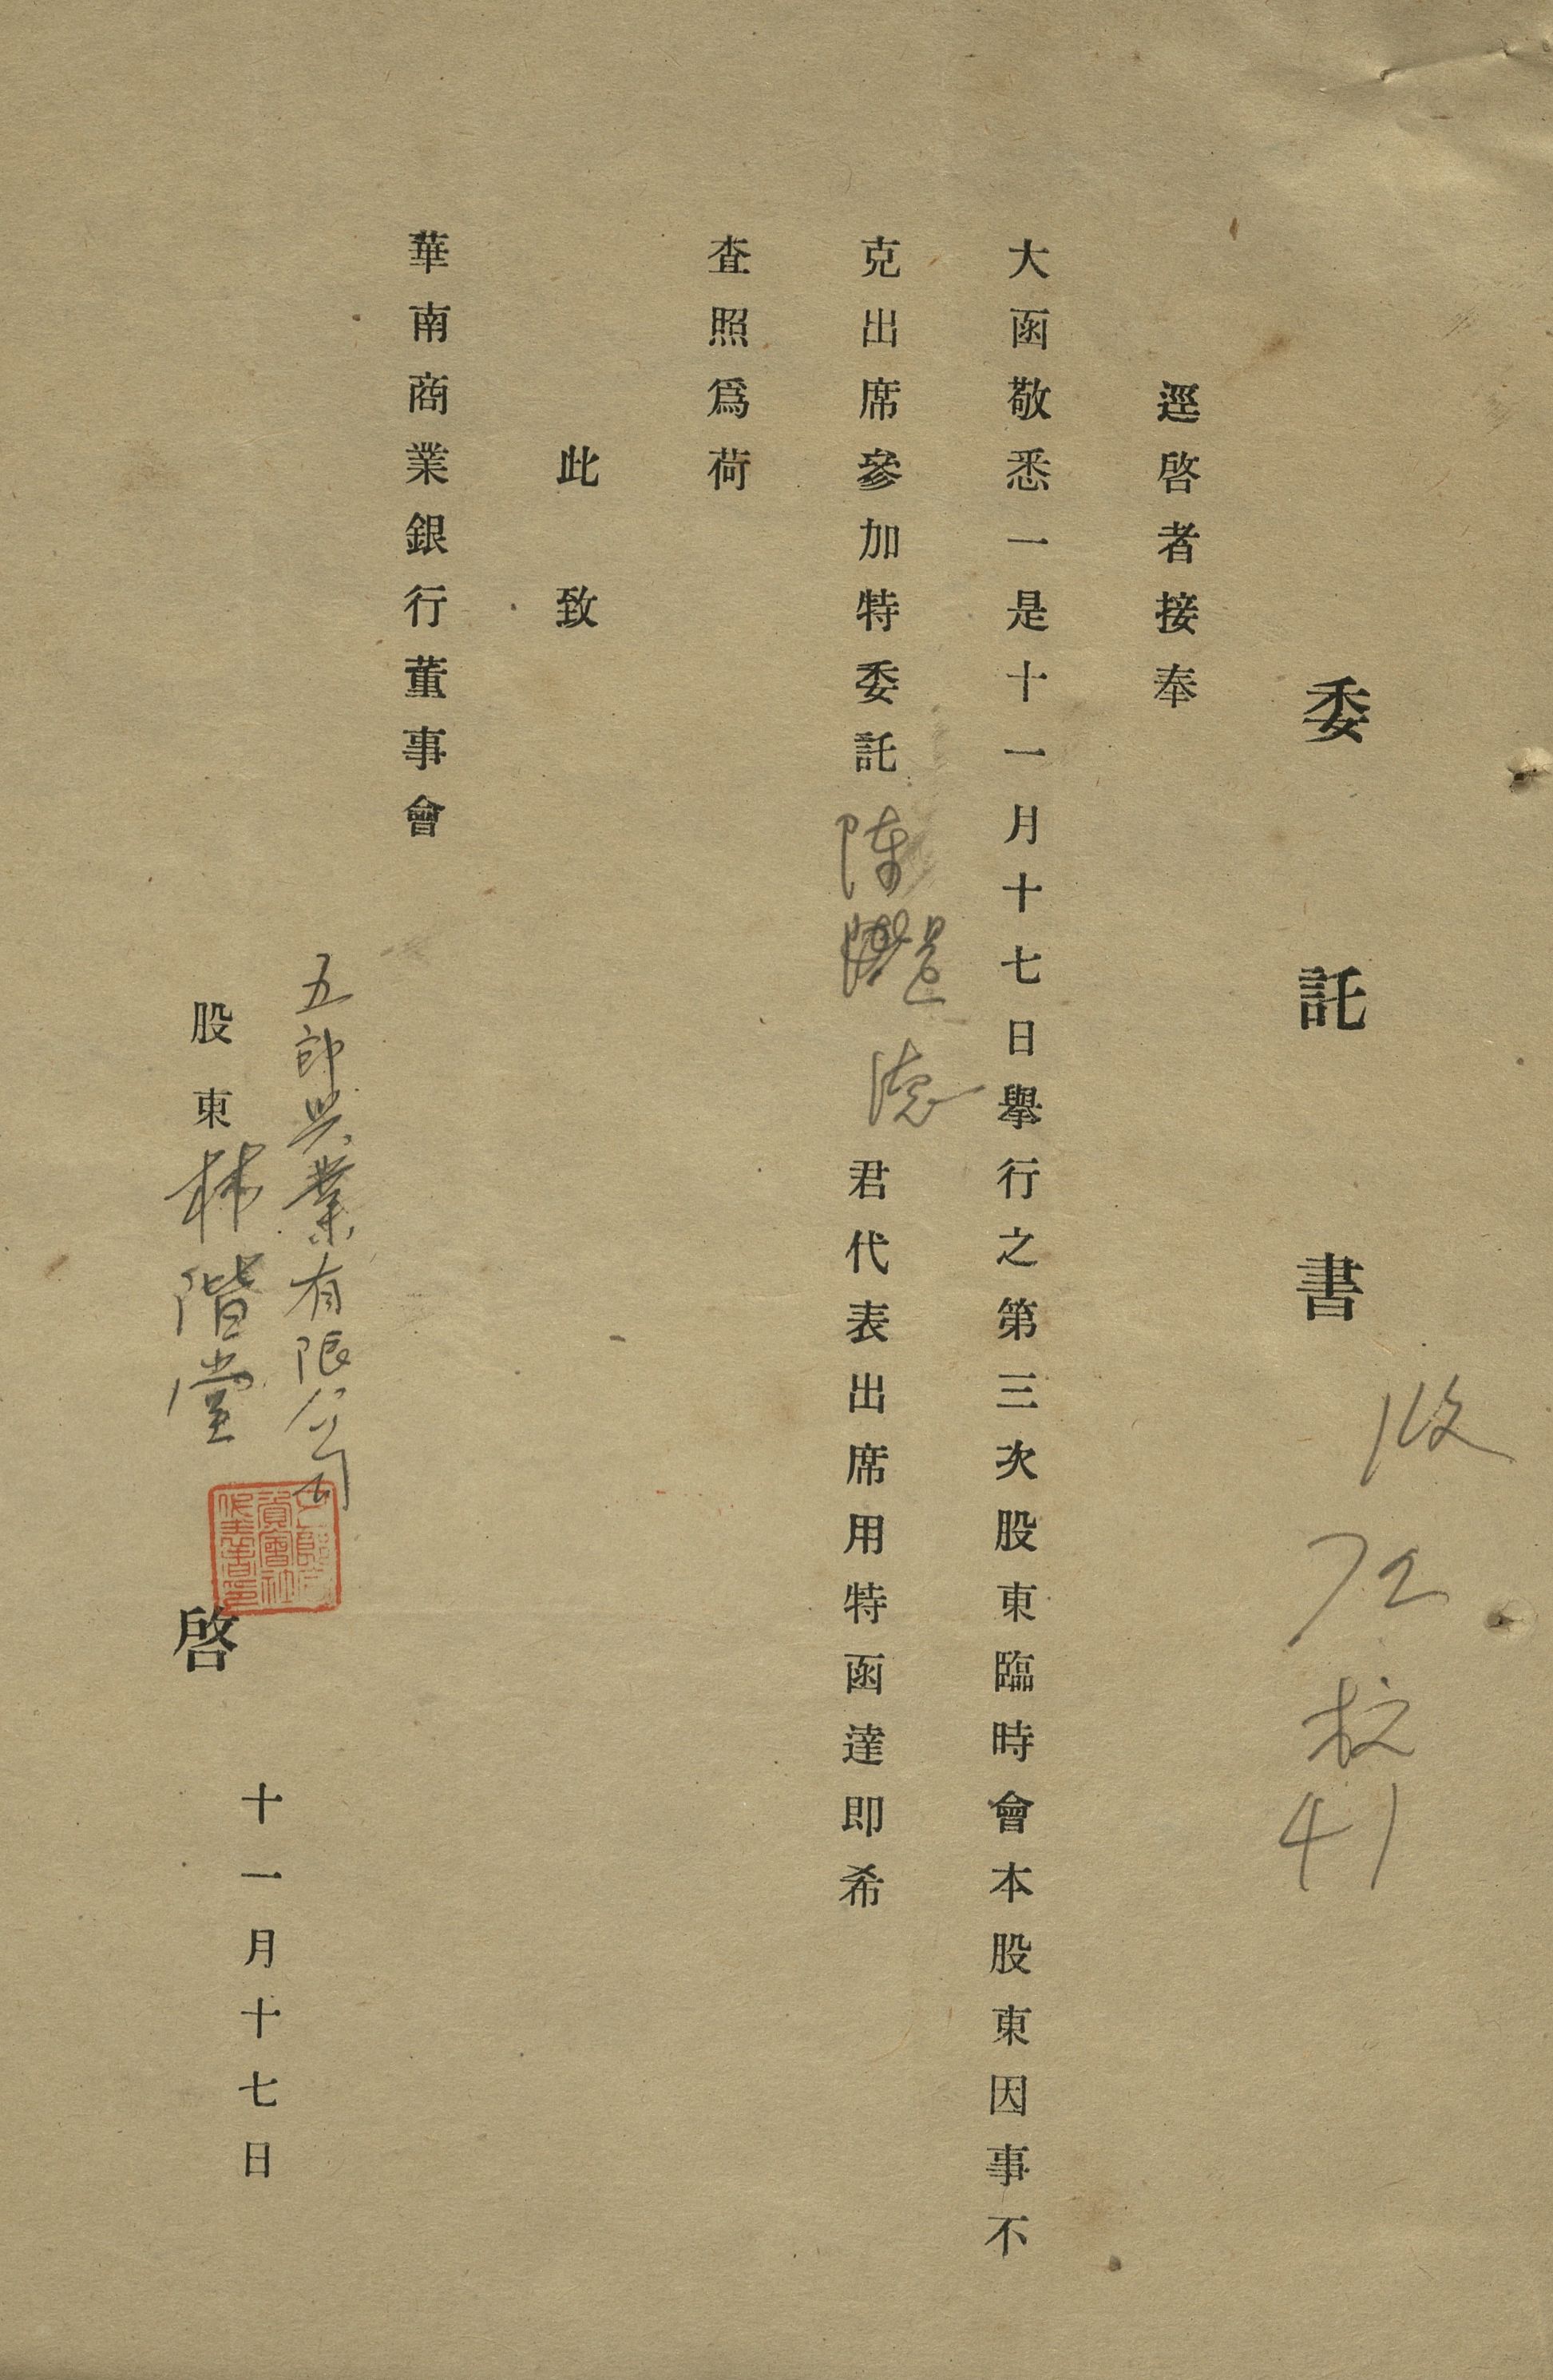 委託書
收
72
校
41
逕啓者接奉
大函敬悉一是十一月十七日舉行之第三次股東臨時會本股東因事不
克出席參加特委託陳 德君代表出席用特函達即希
查照爲荷
此致
華南商業銀行董事會
五郎興業有限公司
股東林階堂
啓
十一月十七日